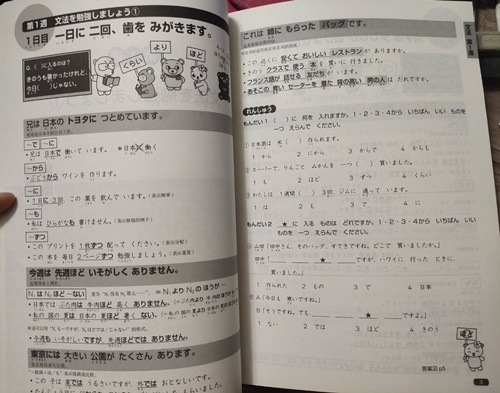 第1週 文法を勉強しましょう①
1日目 一日に 二回、歯を みがきます。
より
ほど
くらい
Q.( )に入るのは？
きのうも暑かったけれど、
今日( )じゃない。
兄は 日本の トヨタに つとめています。
～で ～に
・兄は 日本で 働いて います。
～から
・ぶどうから ワインを 作ります。
～に
・1日に 3回、この 薬を 飲んで います。
～も
・私は ひらがなも 書けません。
～ずつ
・この プリントを 1枚ずつ 配って ください。
・この 本を 毎日 2ページずつ 勉強しましょう。
今週は 先週ほど いそがしく ありません。
N₁は N₂ほど ～ない
・日本では ぶた肉は 牛肉ほど 高く ありません。
・私の 国の 夏は 日本の 夏ほど 暑く ない。
・今週も いそがしいですが、先週ほどでは ありません。
東京には 大きい 公園が たくさん あります。
・この 子は 家では うるさいですが、外では おとなしいです。
これは 姉に もらった バッグです。
・この 近くに 安くて おいしい レストランが ありますか。
・きのう クラスで 使う 本を 買いに 行きました。
・フランス語が 話せる 友だちが います。
・あそこの 青い セーターを 着た 背の高い 男の人は だれですか。
れんしゅう
もんだい1 ( )に 何を 入れますか。1・2・3・4から いちばん いい ものを
一つ えらんで ください。
①日本酒は 米( )作られます。
1 から 2 に 3 で 4 が
②スーパーで、りんごと みかんを 一つ( )買いました。
1 も 2 ほど 3 ずつ 4 くらい
③わたしは 1週間( )3回、ジムに 通って います。
1 は 2 も 3 で 4 に
もんだい2 ★ に 入る ものは どれですか。1・2・3・4から いちばん いい
ものを 一つ えらんで ください。
④山田「田中さん、そのバッグ、すてきですね。どこで 買いましたか。」
田中「 ★ ですが、ハワイに 行った ときに、
買いました。」
1 作られた 2 もの 3 で 4 日本
⑤A「今日も 寒いですね。」
B「そうですね。でも、 ★ ですよ。」
1 ない 2 では 3 ほど 4 きのう
ほど
答案見 p5
文法 第1週
3